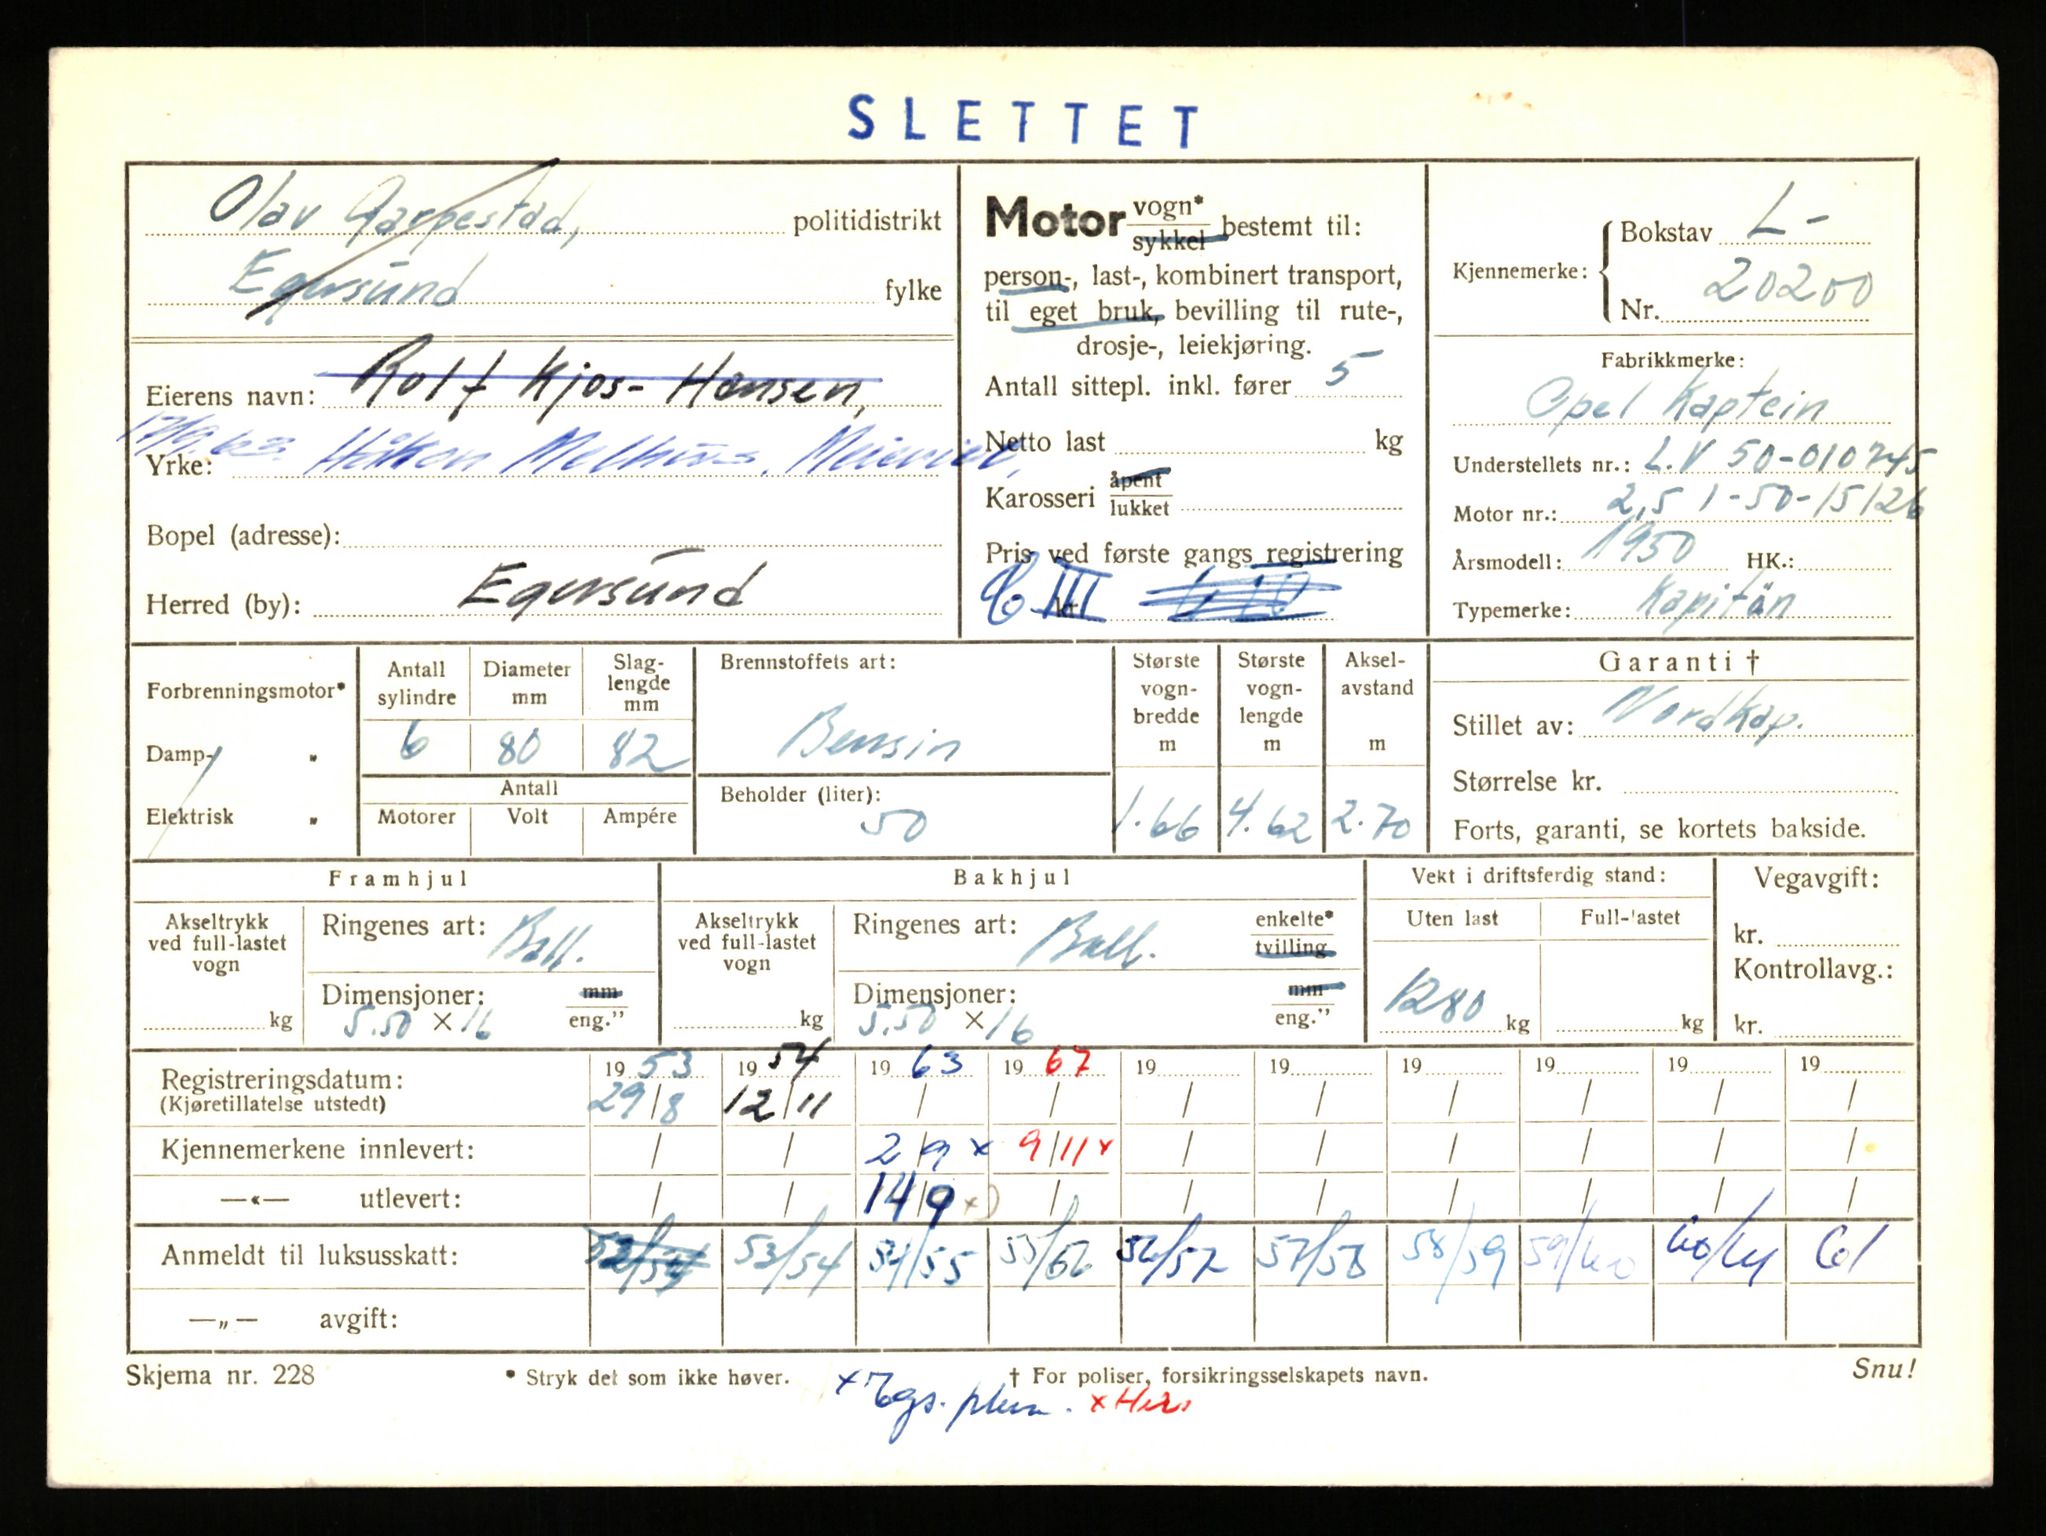 SLETTET
Olav Garpestad, politidistrikt
Egersund fylke
Eierens navn: Rolf Kjos-Hansen,
Yrke: Håkon Melhus, Meieriet,
Bopel (adresse):
Herred (by): Egersund
Motor vogn* sykkel bestemt til:
person-, last-, kombinert transport,
til eget bruk, bevilling til rute-,
drosje-, leiekjøring.
Antall sittepl. inkl. fører 5
Netto last kg
Karosseri åpent lukket
Pris ved første gangs registrering
kr. III
Kjennemerke: Bokstav L-
Nr. 20200
Fabrikkmerke:
Opel Kaptein
Understellets nr.: L.V 50-010745
Motor nr.: 2,5 1-50-15126
Årsmodell: 1950 HK.:
Typemerke: Kapitän
Forbrenningsmotor*
Damp- "
Elektrisk "
Antall sylindre Diameter mm Slag-lengde mm
6 80 82
Antall
Motorer Volt Ampére
Brennstoffets art:
Bensin
Beholder (liter):
50
Største vogn-bredde m Største vogn-lengde m Aksel-avstand m
1.66 4.62 2.70
Garanti †
Stillet av: Nordkap.
Størrelse kr.
Forts, garanti, se kortets bakside.
Framhjul
Akseltrykk ved full-lastet vogn
kg
Ringenes art: Ball.
Dimensjoner: mm
5.50 × 16 eng."
Bakhjul
Akseltrykk ved full-lastet vogn
kg
Ringenes art: Ball. enkelte* tvilling
Dimensjoner: mm
5.50 × 16 eng."
Vekt i driftsferdig stand:
Uten last Full-lastet
1280 kg kg
Vegavgift:
kr.
Kontrollavg.:
kr.
Registreringsdatum: 19 53 19 54 19 63 19 67 19 19 19 19 19 19
(Kjøretillatelse utstedt) 29/8 12/11 / / / / / / / /
Kjennemerkene innlevert: / / 2/9 x 9/11 x / / / / / /
—«— utlevert: / / 14/9 x) / / / / / / /
Anmeldt til luksusskatt: 53/54 53/54 54/55 55/56 56/57 57/58 58/59 59/60 60/61 61
—„— avgift:
Skjema nr. 228 * Stryk det som ikke høver. † For poliser, forsikringsselskapets navn. Snu!